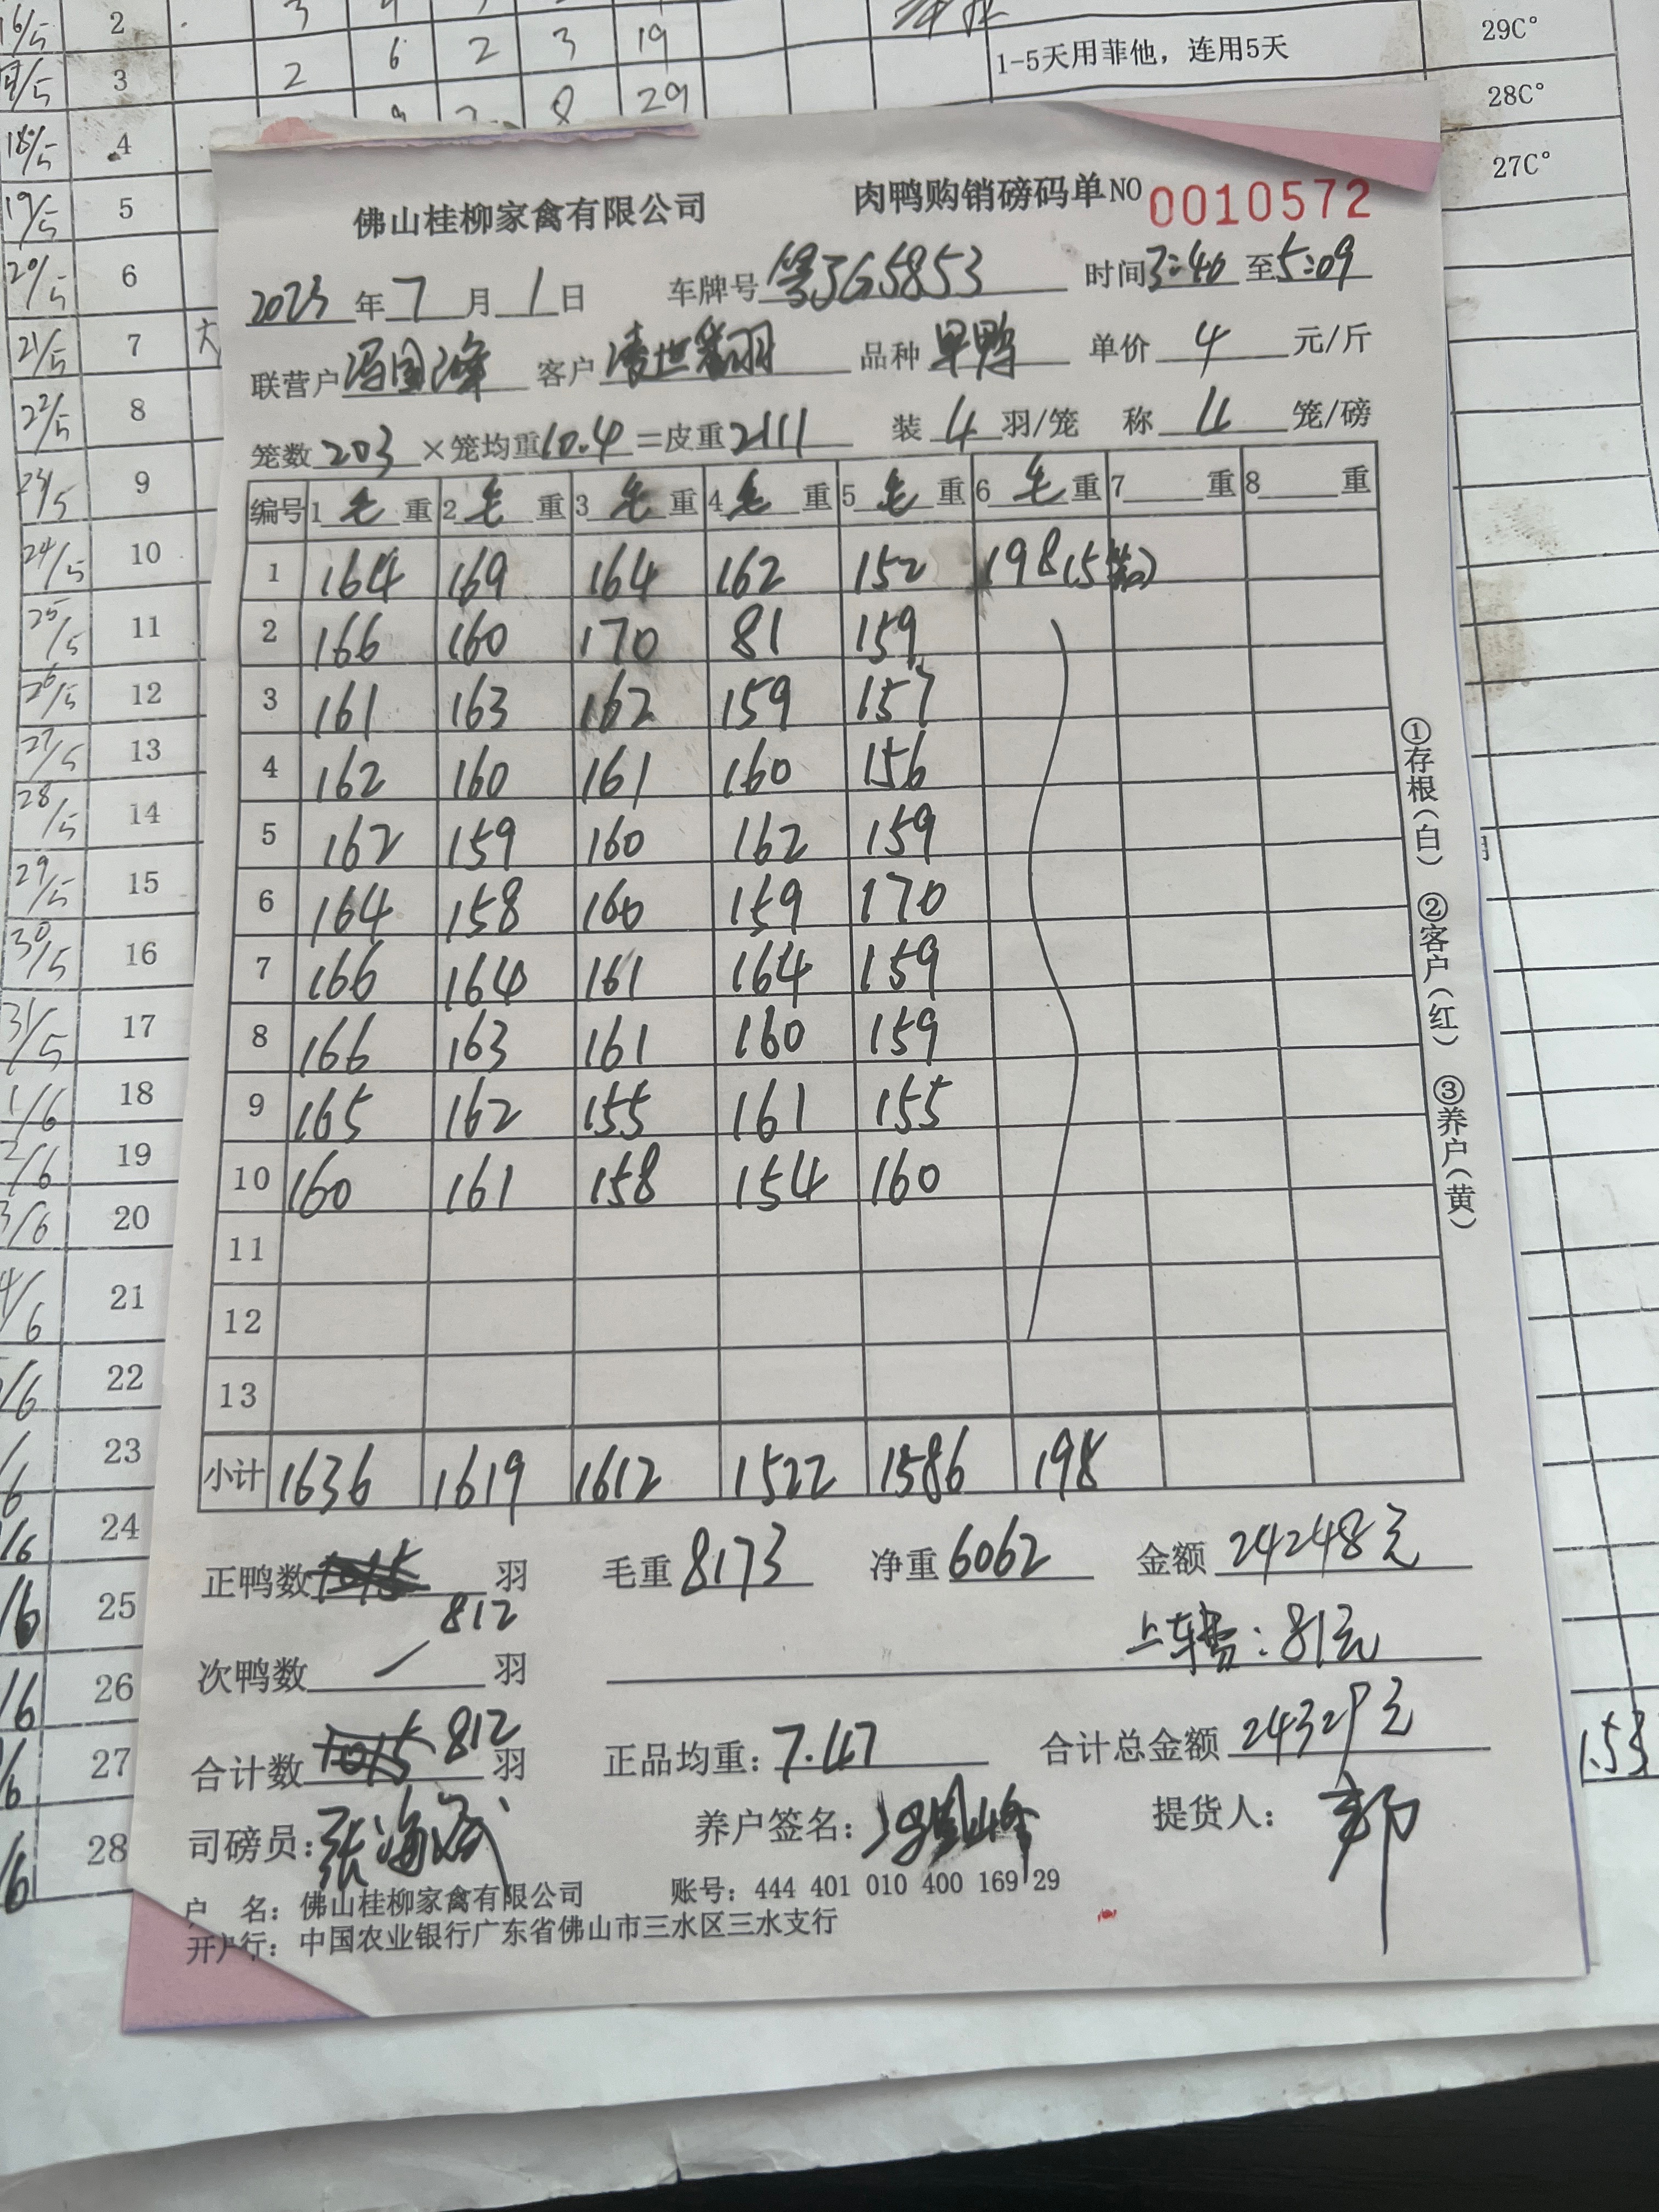 佛山桂柳家禽有限公司 肉鸭购销磅码单NO 0010572
2023年7月1日 车牌号粤JG5853 时间3:40至5:09
联营户冯国峰 客户 品种旱鸭 单价4元/斤
笼数203×笼均重10.4=皮重2111 装4羽/笼 称4笼/磅
编号 1毛重 2毛重 3毛重 4毛重 5毛重 6毛重 7重 8重
1 164 169 164 162 152 198(5笼)
2 166 160 170 81 159
3 161 163 162 159 157
4 162 160 161 160 156
5 162 159 160 162 159
6 164 158 160 159 170
7 166 164 161 164 159
8 166 163 161 160 159
9 165 162 155 161 155
10 160 161 158 154 160
11
12
13
小计 1636 1619 1612 1522 1586 198
正鸭数1015羽 毛重8173 净重6062 金额24248元
812
次鸭数/羽 上车费:81元
合计数1015 812羽 正品均重:7.47 合计总金额24329元
司磅员:张海成 养户签名:冯国峰 提货人:郭
户 名:佛山桂柳家禽有限公司 账号:444 401 010 400 169 29
开户行:中国农业银行广东省佛山市三水区三水支行
①存根(白) ②客户(红) ③养户(黄)
16/5 2 3 29C°
17/5 3 2 6 2 3 19 1-5天用菲他，连用5天 28C°
18/5 4 8 29 27C°
19/5 5
20/5 6
21/5 7 大
22/5 8
23/5 9
24/5 10
25/5 11
26/5 12
27/5 13
28/5 14
29/5 15
30/5 16
31/5 17
1/6 18
2/6 19
3/6 20
4/6 21
/6 22
/6 23
/6 24
/6 25
/6 26
/6 27 1.53
/6 28